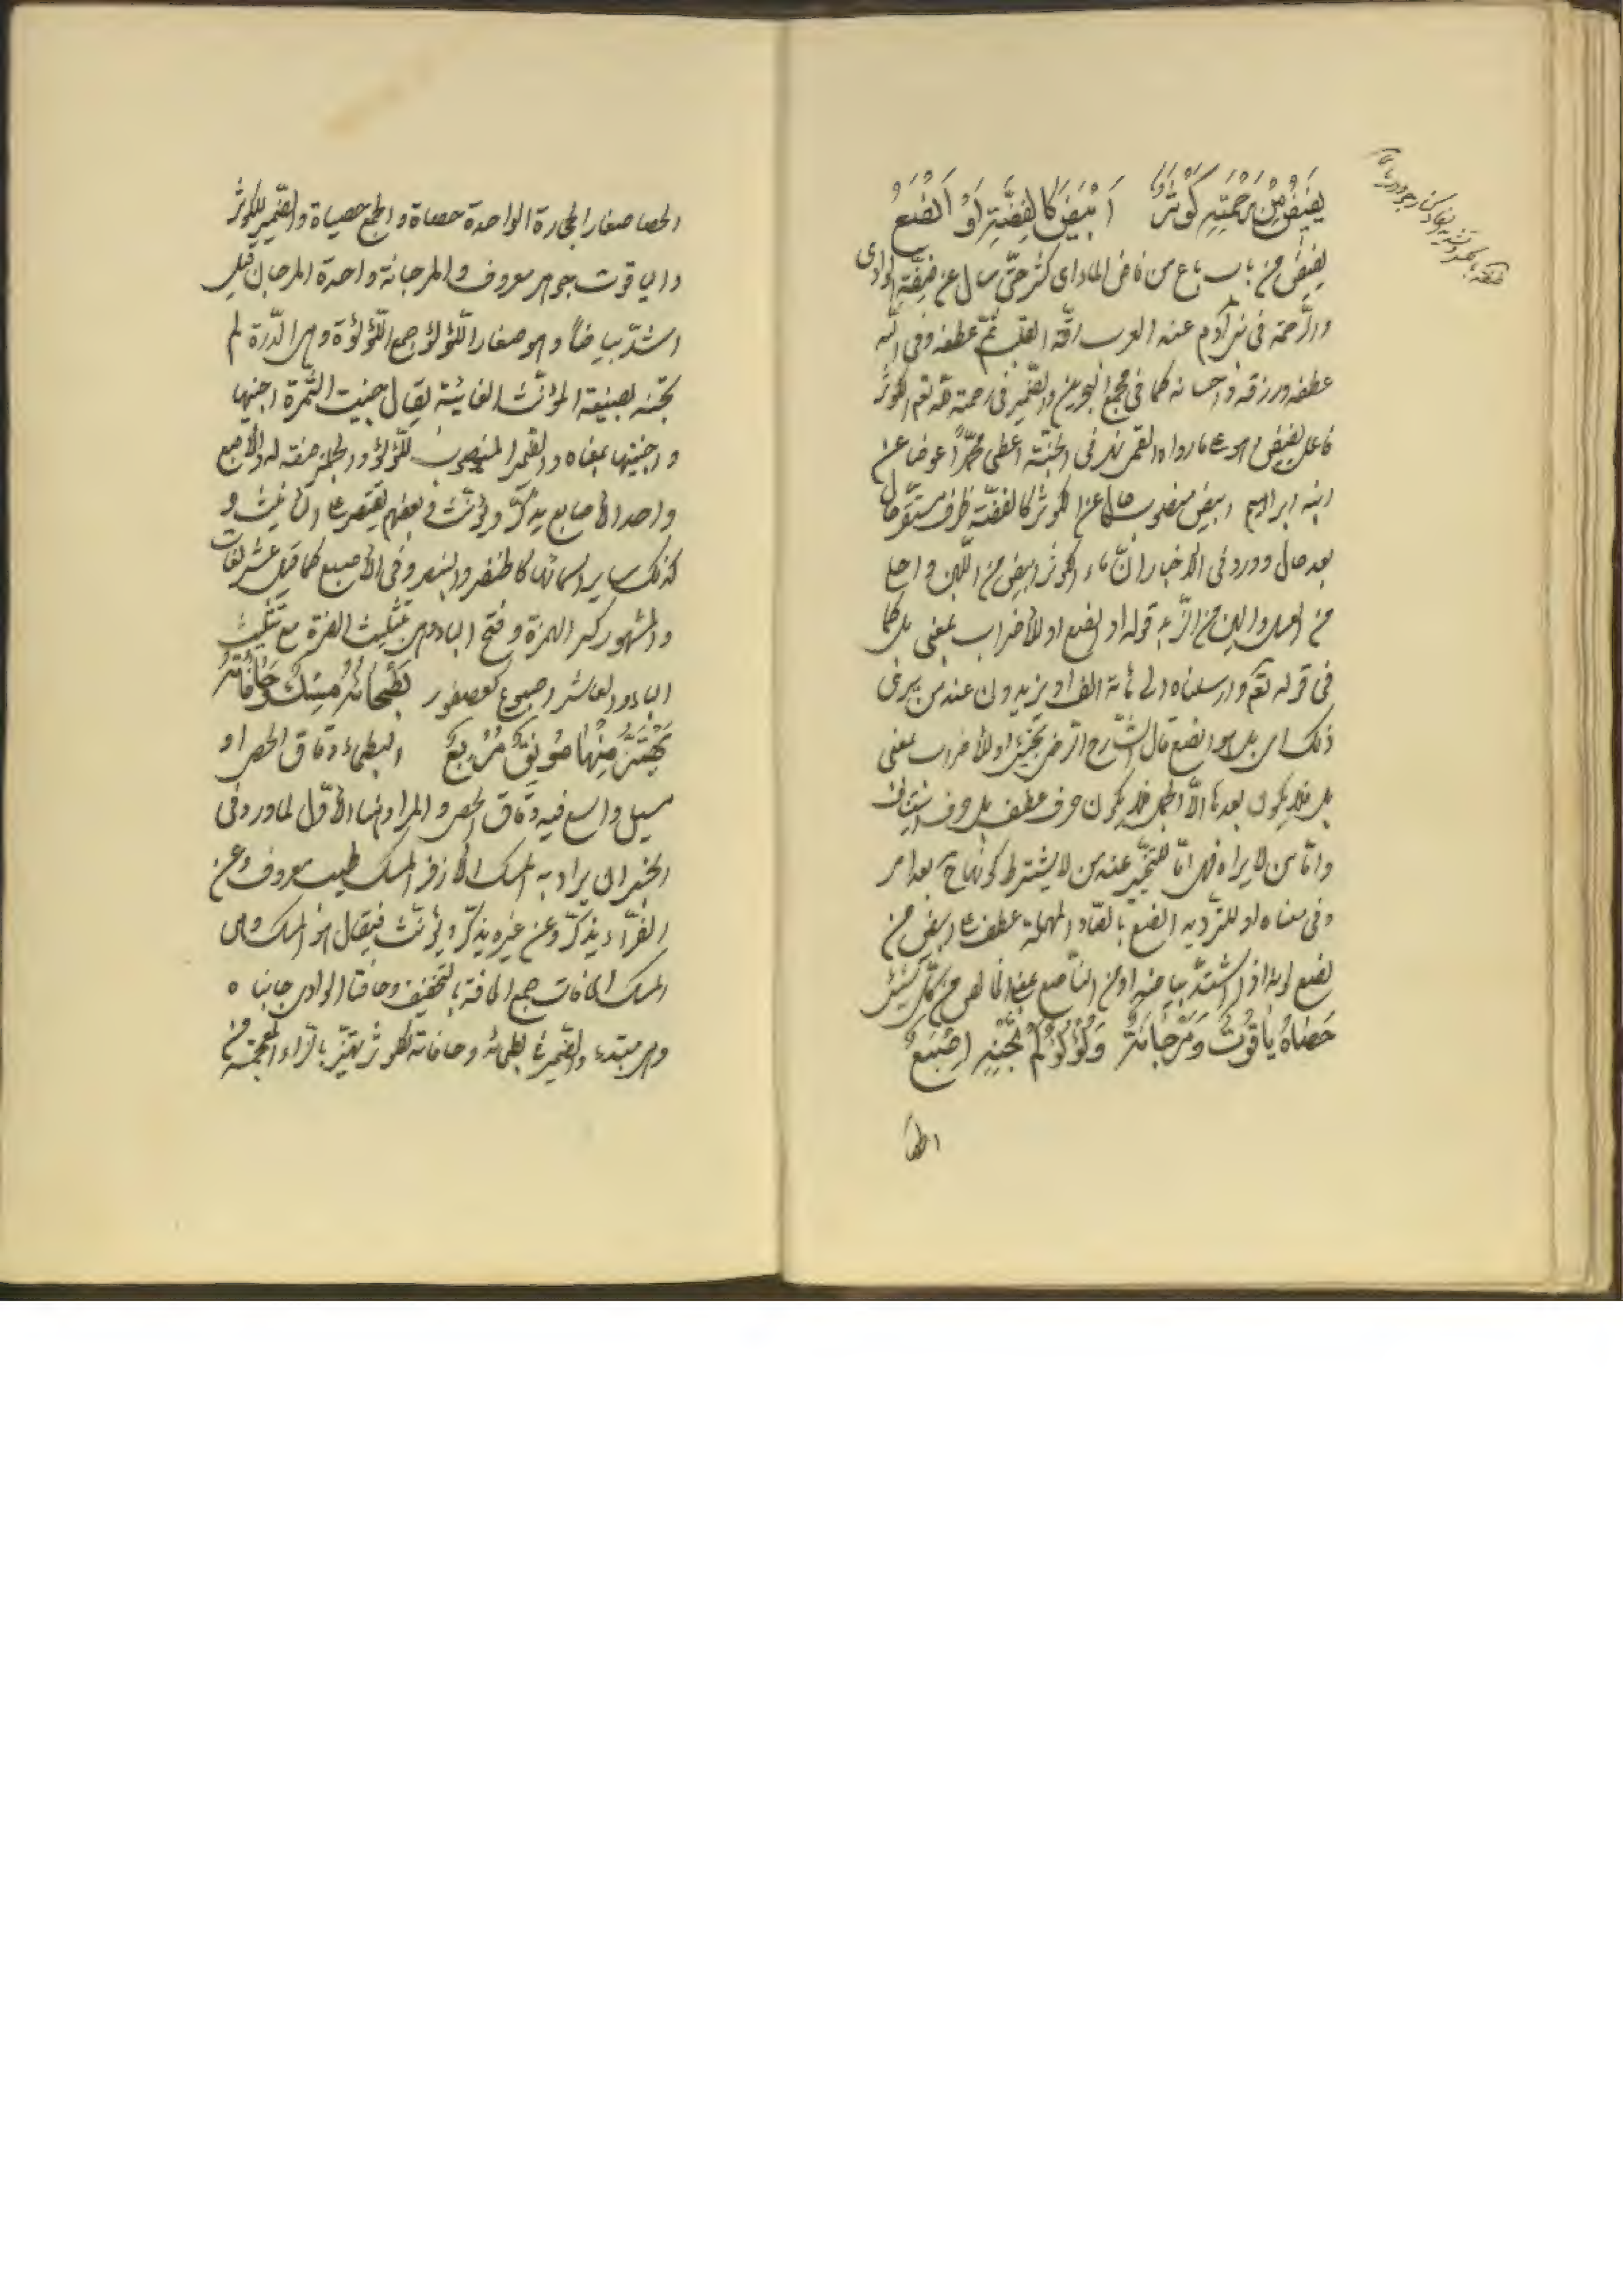 يفيض من رحمته كوثر ابيض كالفضة او انصع
يفيض من باب باع من فاض الماء اى كثر حتى سال عن ضفة الوادى
والرحمة فى بنى آدم عند العرب رقة القلب ثم عطفه وفى الله
عطفه ورزقه واحسانه كما فى مجمع البحرين والضمير فى رحمته لله تعم الكوثر
فاعل يفيض وهو على ما رواه القمى نهر فى الجنة اعطى محمدا عوضا عن
ابنه ابراهيم ابيض منصوب حال عن الكوثر كالفضة ظرف مستقر حال
بعد حال وورد فى الاخبار ان ماء الكوثر ابيض من اللبن واحلى
من العسل والين من الزبد قوله او انصع او للاضراب بمعنى بل كما
فى قوله تعم وارسلناه الى مائة الف او يزيدون عند من يرى
ذلك اى بل هو انصع قال الشارح الرضى تجىء او للاضراب بمعنى
بل فلا يكون بعدها الا الجمل فلا يكون حرف عطف بل حرف استيناف
واما من لا يراه فهى اما للتخيير عند من لا يشترط كونها بعد امر
وفى معناه او للترديد انصع بالصاد المهملة عطف على ابيض من
نصع لونه اذا اشتد بياضه او من الناصع بمعنى الخالص من كل شىء
حصاه ياقوت ومرجانة ولؤلؤ لم تجنه اصبع
الحصا
الحصا صغار الحجارة الواحدة حصاة والجمع حصيات والضمير للكوثر
والياقوت جوهر معروف والمرجانة واحدة المرجان قيل
اشد بياضا وهو صغار اللؤلؤ جمع اللؤلؤة وهى الدرة لم
تجنه بصيغة المؤنث الغائبة يقال جنيت الثمرة اجنيها
واجتنيتها بمعناه والضمير المنصوب للؤلؤ والجملة صفة له والاصبع
واحد الاصابع يذكر ويؤنث وبعضهم يقتصر على التانيث و
كذلك ساير اسمائها كالخنصر والبنصر وفى الاصبع كما قيل عشر لغات
والمشهور كسر الهمزة وفتح الباء وهى بتثليث الهمزة مع تثليث
الباء والعاشر اصبوع كعصفور بطحائه مسك وحافاته
يهتز منها مونق مربع البطحاء دقاق الحصى او
مسيل واسع فيه دقاق الحصى والمراد هنا الاول لما ورد فى
الخبر ان يراد به المسك الازفر المسك طيب معروف وعن
الفراء يذكر وعن غيره يذكر ويؤنث فيقال هو المسك وهى
المسك الحافات جمع الحافة بالتخفيف وحافتا الوادى جانباه
وهى مبتدء والضمير فى بطحائه وحافاته للكوثر تهتز بالزاء المعجمة من